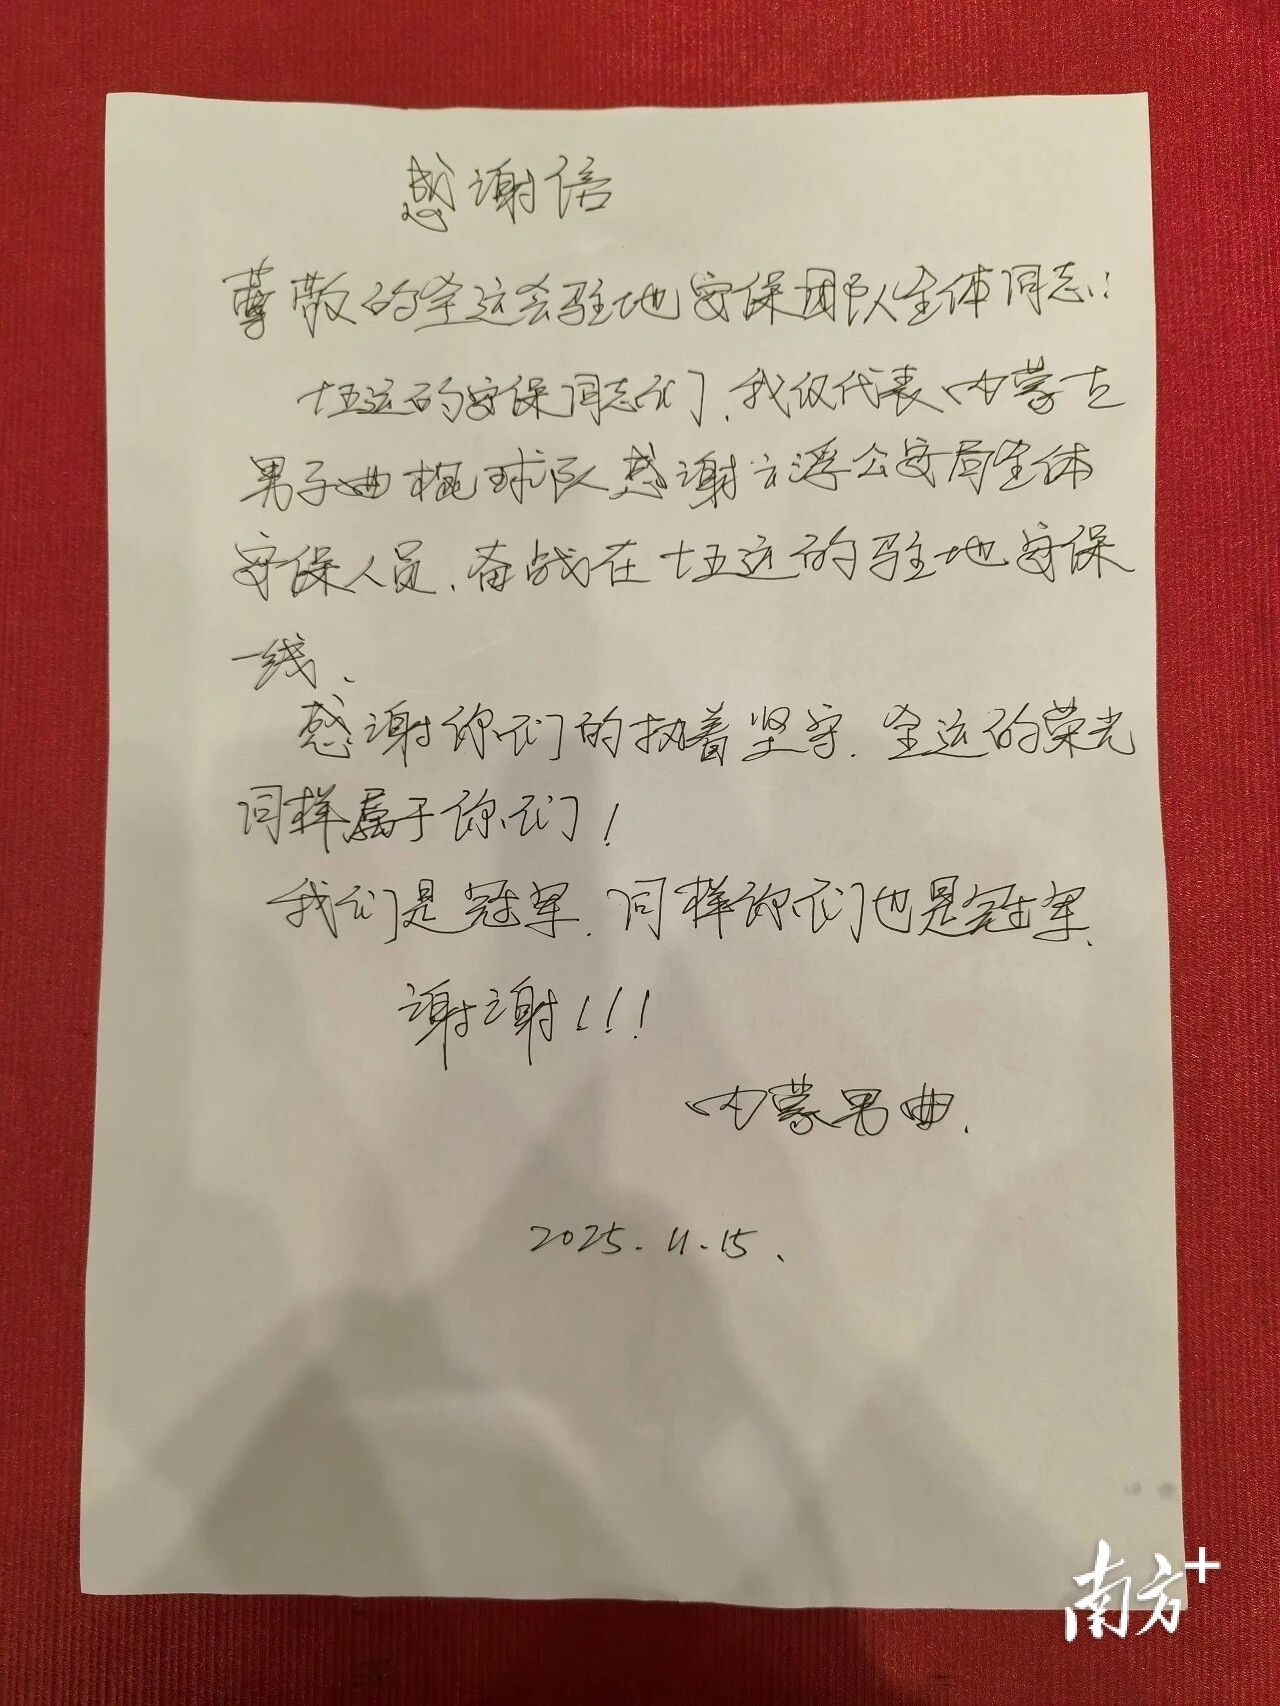 感谢信
尊敬的全运会驻地安保团队全体同志：
十五运的安保同志们，我仅代表内蒙古
男子曲棍球队感谢云浮公安局全体
安保人员，奋战在十五运的驻地安保
一线、
感谢你们的执着坚守，全运的荣光
同样属于你们！
我们是冠军，同样你们也是冠军，
谢谢！！！
内蒙男曲.
2025.11.15、
南方+